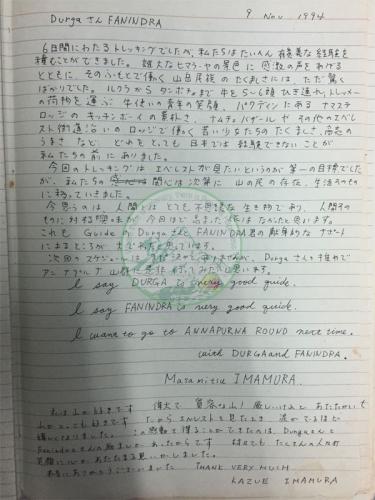 Durgaさん FANINDRA 9 Nov 1994
6日間にわたるトレッキングでしたが、私たちはたいへん貴重な経験を
積むことができました。雄大なヒマラヤの景色に感激の声をあげる
とともに、そのふもとで働く山岳民族のたくましさには、ただ驚く
ばかりでした。ルクラからタンボチェまで牛を5〜6頭ひき連れ、トレッカー
の荷物を運ぶ牛使いの青年の笑顔、パクディンにあるナマステ
ロッジのキッチンボーイの素朴さ、ナムチェバザールやその他のエベレ
スト街道沿いのロッジで働く若い少女たちのたくましさ、商売の
うまさなど、どれをとっても日本では経験できないことが
私たちの前にありました。
今回のトレッキングはエベレストが見たいというのが第一の目標でした
が、私たちの関心は次第に山の民の存在、生活そのもの
に移っていきました。
今思うのは、人間はとても不思議な生き物であり、人間その
ものに対する興味が今回ほど高まった事はなかったと思います。
これも Guide の Durgaさんと FANINDRA君の献身的なサポート
によるところが大であったと思っています。
次回のスケジュールはまだ決めてありませんが、Durgaさんも推めて
アンナプルナ山群に是非行ってみたいと思います。
I say DURGA is very good guide.
I say FANINDRA is very good guide.
I want to go to ANNAPURNA ROUND next time.
with DURGA and FANINDRA.
Masamitsu IMAMURA.
私は山が好きです 偉大で 寛容な山! 厳しいけれど あたたかいで
山がとっても好きです だから、エベレストを見たとき 涙がでるほど
嬉しくなりました。この感動を得ることができたのは、Durgaさんと
Fanindraさんの励ましがあったからです たくさんの人々の
笑顔に心があたたまる思いがしました。
本当にありがとうございました THANK VERY MUCH
KAZUE IMAMURA